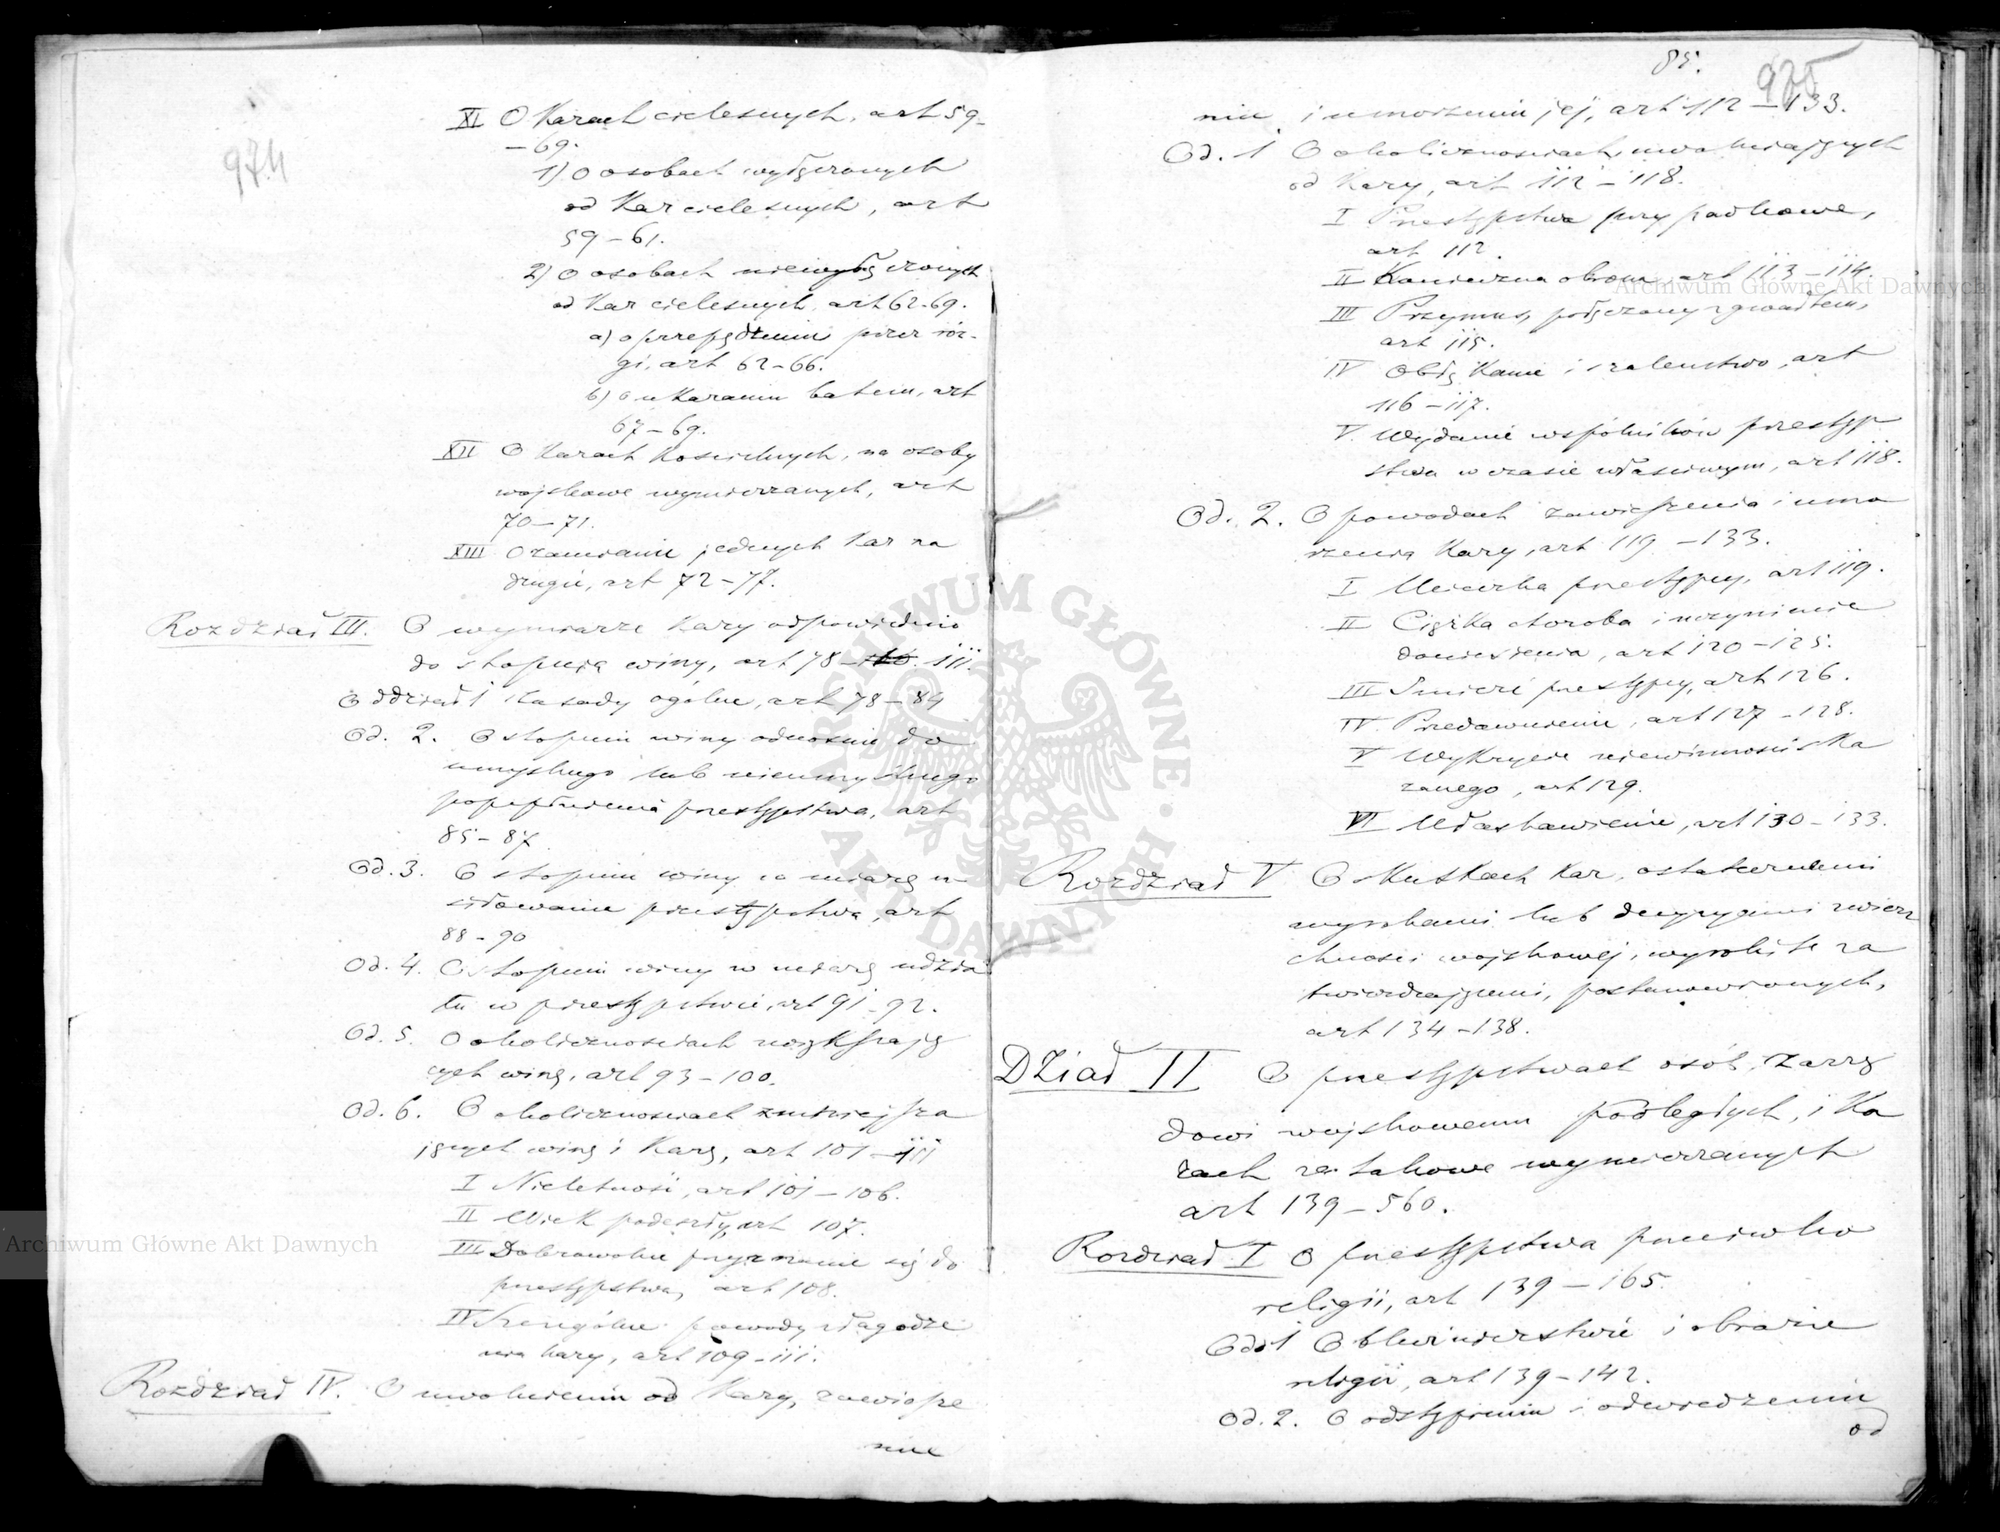 974
XI O Karach cielesnych, art 59-
-69.
1) O osobach wyłączonych
od Kar cielesnych, art
59-61.
2) O osobach niewyłączonych
od Kar cielesnych, art 62-69.
a) o przepędzeniu przez róz-
gi, art 62-66.
b) o ukaraniu batem, art
67-69.
XII O Karach Kościelnych, na osoby
wojskowe wymierzanych, art
70-71.
XIII O zamianie jednych kar na
drugie, art 72-77.
Rozdział III. O wymiarze Kary odpowiednio
do stopnia winy, art 78- 111.
Oddział 1 Zasady ogólne, art 78-84
Od. 2. O stopniu winy odnośnie do
umyślnego lub nieumyślnego
popełnienia przestępstwa, art
85-87
Od. 3. O stopniu winy w miarę u-
siłowania przestępstwa, art
88-90
Od. 4. O stopniu winy w miarę udzia
łu w przestępstwie, art 91-92.
Od. 5. O okolicznościach zwiększają
cych winę, art 93-100.
Od. 6. O okolicznościach zmniejsza
jących winę i Karę, art 101-111
I Nieletność, art 101-106.
II Wiek podeszły, art 107.
III Dobrowolne przyznanie się do
przestępstwa, art 108.
IV Szczególne powody złagodze
nia kary, art 109-111.
Rozdział IV. O uwolnieniu od Kary, zawiesze
niu
85.
975
niu i umorzeniu jej, art 112-133.
Od. 1 O okolicznościach, uwalniających
od Kary, art 112-118.
I Przestępstwa przypadkowe,
art 112.
II Konieczna obrona art 113-114.
III Przymus, połączony z gwałtem,
art 115.
IV Obłąkanie i szaleństwo, art
116-117.
V. Wydanie wspólników przestęp
stwa w czasie właściwym, art 118.
Od. 2. O powodach zawieszenia i umo
rzenia Kary, art 119-133.
I Ucieczka przestępcy, art 119.
II Ciężka choroba i uczynienie
doniesienia, art 120-125.
III Śmierć przestępcy, art 126.
IV Przedawnienie, art 127-128.
V Wykrycie niewinności ska
zanego, art 129.
VI Ułaskawienie, art 130-133.
Rozdział V O skutkach Kar, ostatecznemi
wyrokami lub decyzyami zwierz
chności wojskowej, wyroki te za
twierdzającemi, postanowionych,
art 134-138.
Dział II O przestępstwach osób, zarzą
dowi wojskowemu podległych, i Ka
rach za takowe wymierzanych
art 139-560.
Rozdział I O przestępstwa przeciwko
religii, art 139-165.
Od. 1 O bluźnierstwie i obrazie
religii, art 139-142.
Od. 2. O odstąpieniu i odwiedzeniu
od
Archiwum Główne Akt Dawnych
Archiwum Główne Akt Dawnych
ARCHIWUM GŁÓWNE AKT DAWNYCH